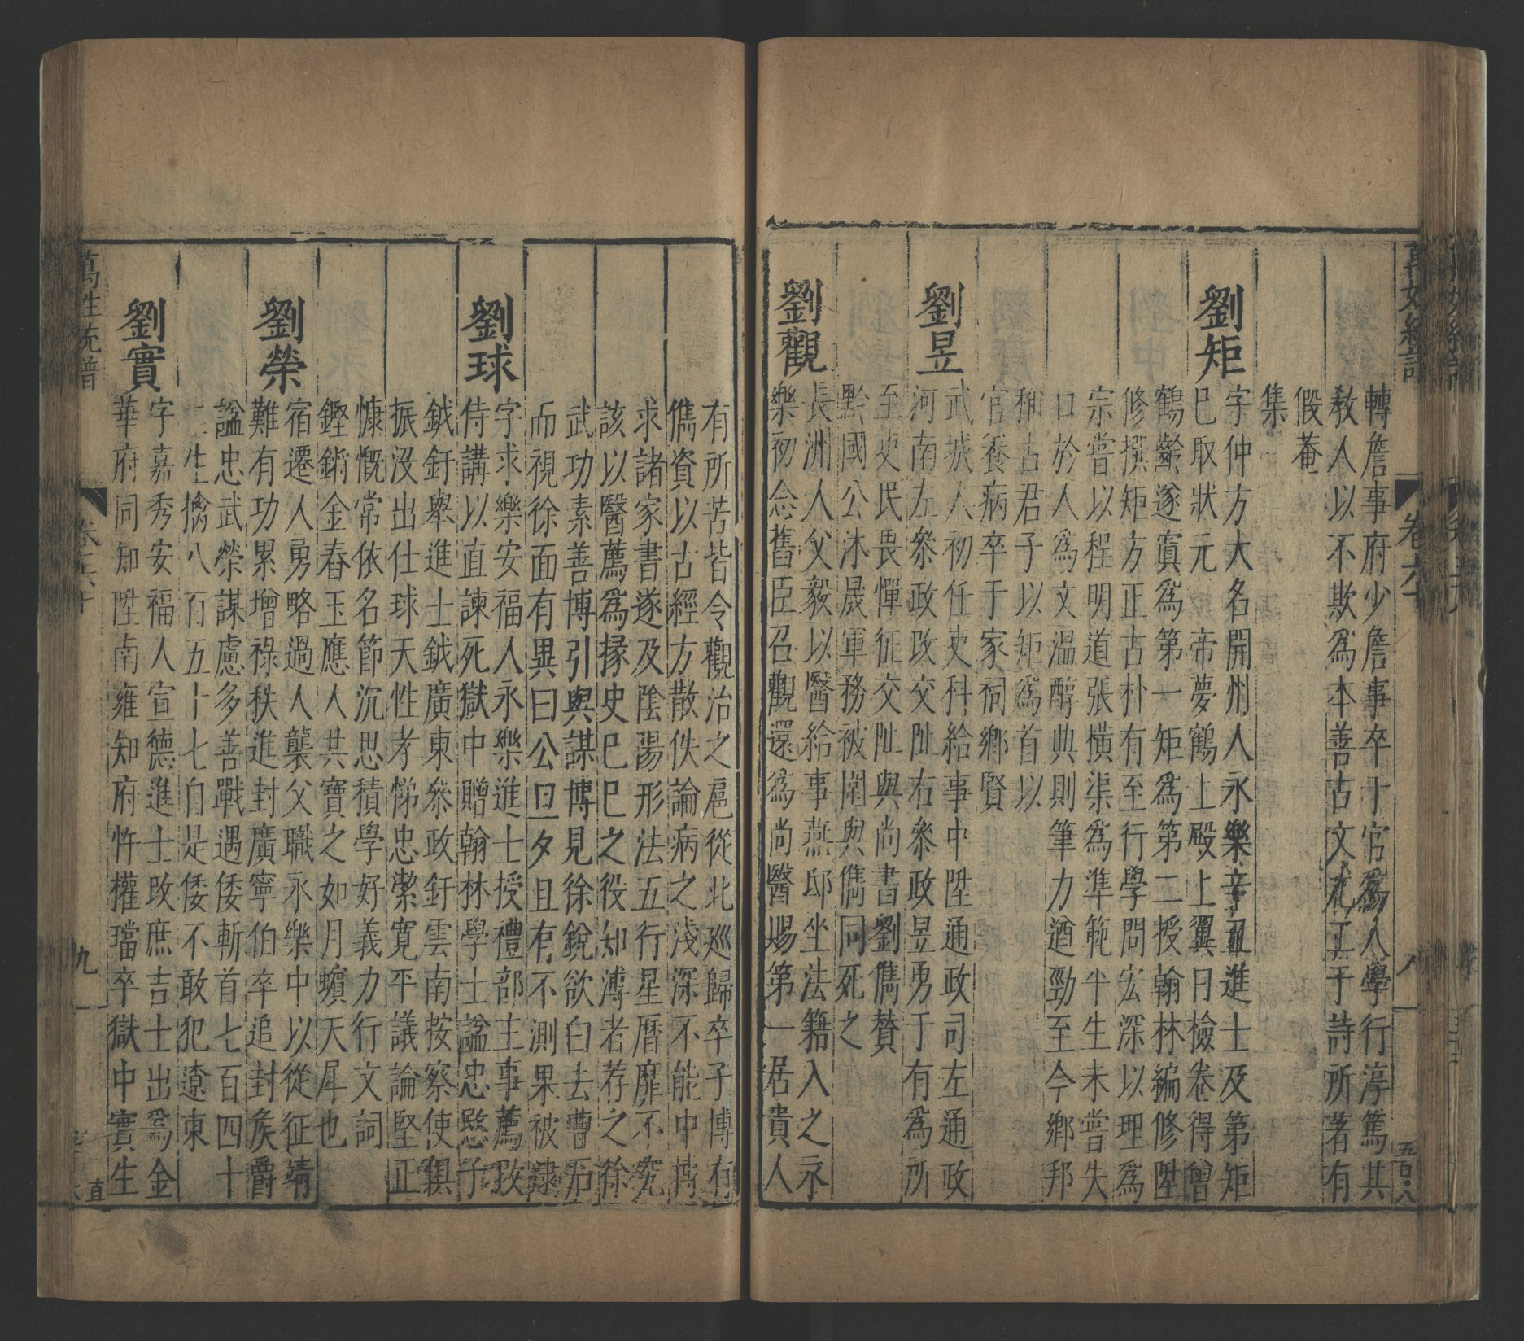 轉詹事府少詹事卒于官爲人學行淳篤其
敎人以不欺爲本善古文尤工于詩所著有
假菴
集
劉矩
字仲方大名開州人永樂辛丑進士及第矩
巳取狀元 帝夢鶴上殿上翼日檢卷得曾
鶴齡遂寘爲第一矩爲第二授翰林編修陞
修撰矩方正古朴有至行學問宏深以理爲
宗嘗以程明道張橫渠爲準範平生未嘗失
口於人爲文温醇典則筆力遒勁至今鄉邦
稱古君子以矩爲首以
官養病卒于家祠鄉賢
劉昱
武城人初任史科給事中陞通政司左通政
河南左叅政改交阯右叅政昱勇于有爲所
至吏民畏憚征交阯與尚書劉儁贊
黔國公沐晟軍務被圍與儁同死之
劉觀
長洲人父毅以醫給事燕邸坐法籍入之永
樂初念舊臣召觀還爲尚醫賜第一居貴人
有所苦皆令觀治之扈從北巡歸卒子博有
儁資以古經方散佚論病之淺深不能中博
求諸家書遂及陰陽形法五行星曆靡不究
該以醫薦爲掾史巳巳之役如溥者荐之徐
武功素善博引與謀博見徐銳欲白去曹石
而視徐面有異曰公旦夕且有不測果被逮
劉球
字求樂安福人永樂進士授禮部主事薦攺
侍講以直諫死獄中贈翰林學士諡忠愍子
鉞釪舉進士鉞廣東叅政釪雲南按察使俱
振沒出仕球天性孝悌忠潔寛平議論堅正
慷慨常依名節沉思積學好義力行文詞
鏗鏘金舂玉應人共寶之如月蠙天犀也
劉榮
宿遷人勇略過人襲父職永樂中以從征靖
難有功累增祿秩進封廣寧伯卒追封矦爵
諡忠武榮謀慮多善戰遇倭斬首七百四十
二生擒八百五十七自是倭不敢犯遼東
劉實
字嘉秀安福人宣德進士攺庶吉士出爲金
華府同知陞南雄知府忤權璫卒獄中實生
萬姓統譜
卷六十
九